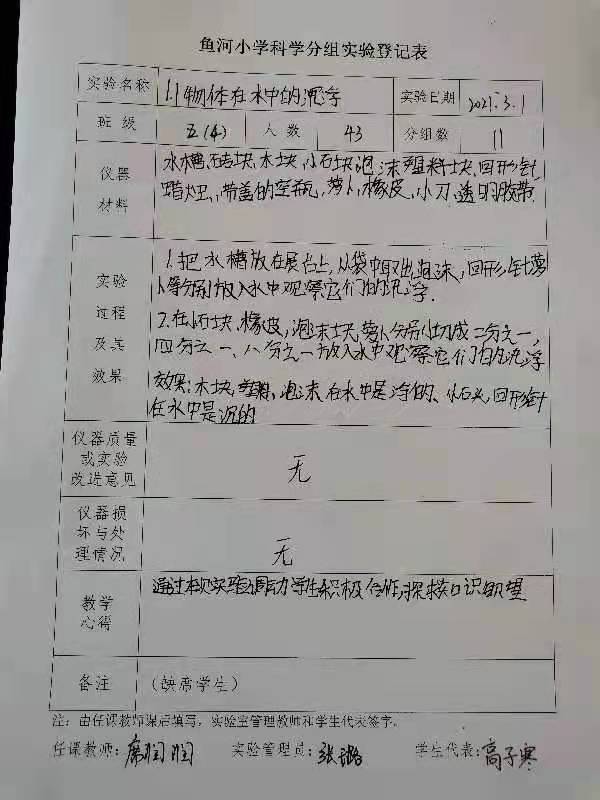 鱼河小学科学分组实验登记表
实验名称 1.1物体在水中的沉浮 实验日期 2021.3.1
班级 五(4) 人数 43 分组数 11
仪器材料 水槽、砖块、木块、小石块、泡沫塑料块、回形针、
蜡烛、带盖的空瓶、萝卜、橡皮、小刀、透明胶带
实验过程及其效果 1.把水槽放在展台上,从袋中取出泡沫,回形针萝
卜等分别放入水中观察它们的沉浮.
2.在小石块、橡皮,泡沫块、萝卜分别切成二分之一,
四分之一、八分之一放入水中观察它们的沉浮
效果:木块、塑料、泡沫在水中是浮的、小石头,回形针
在水中是沉的
仪器质量或实验改进意见 无
仪器损坏与处理情况 无
教学心得 通过本次实验调动学生积极合作,探求知识欲望
备注 (缺席学生)
注:由任课教师课后填写,实验室管理教师和学生代表签字。
任课教师:席润润 实验管理员:张璐 学生代表:高子寒